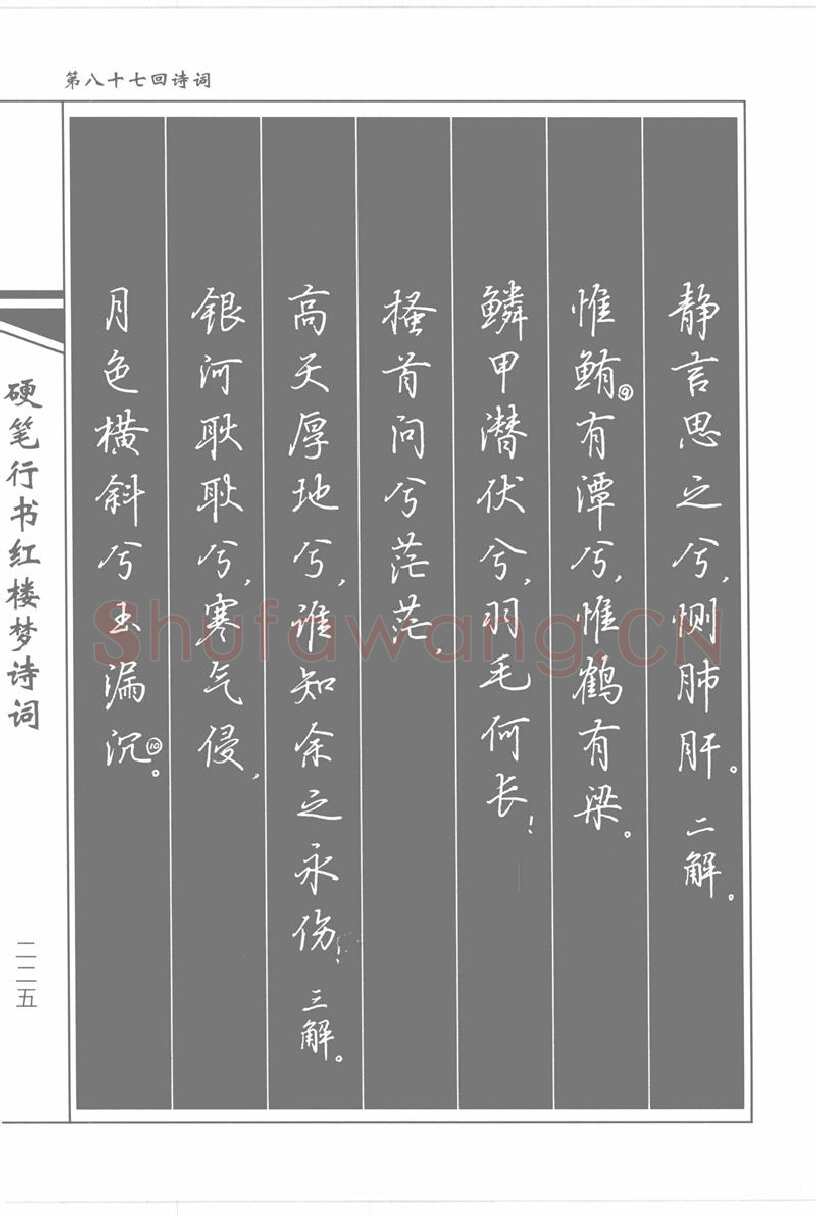 第八十七回诗词
静言思之兮，恻肺肝。二解。
惟鲔⑨有潭兮，惟鹤有梁。
鳞甲潜伏兮，羽毛何长！
搔首问兮茫茫，
高天厚地兮，谁知余之永伤！三解。
银河耿耿兮，寒气侵，
月色横斜兮玉漏沉⑩。
硬笔行书红楼梦诗词
二二五
Shufawang.CN